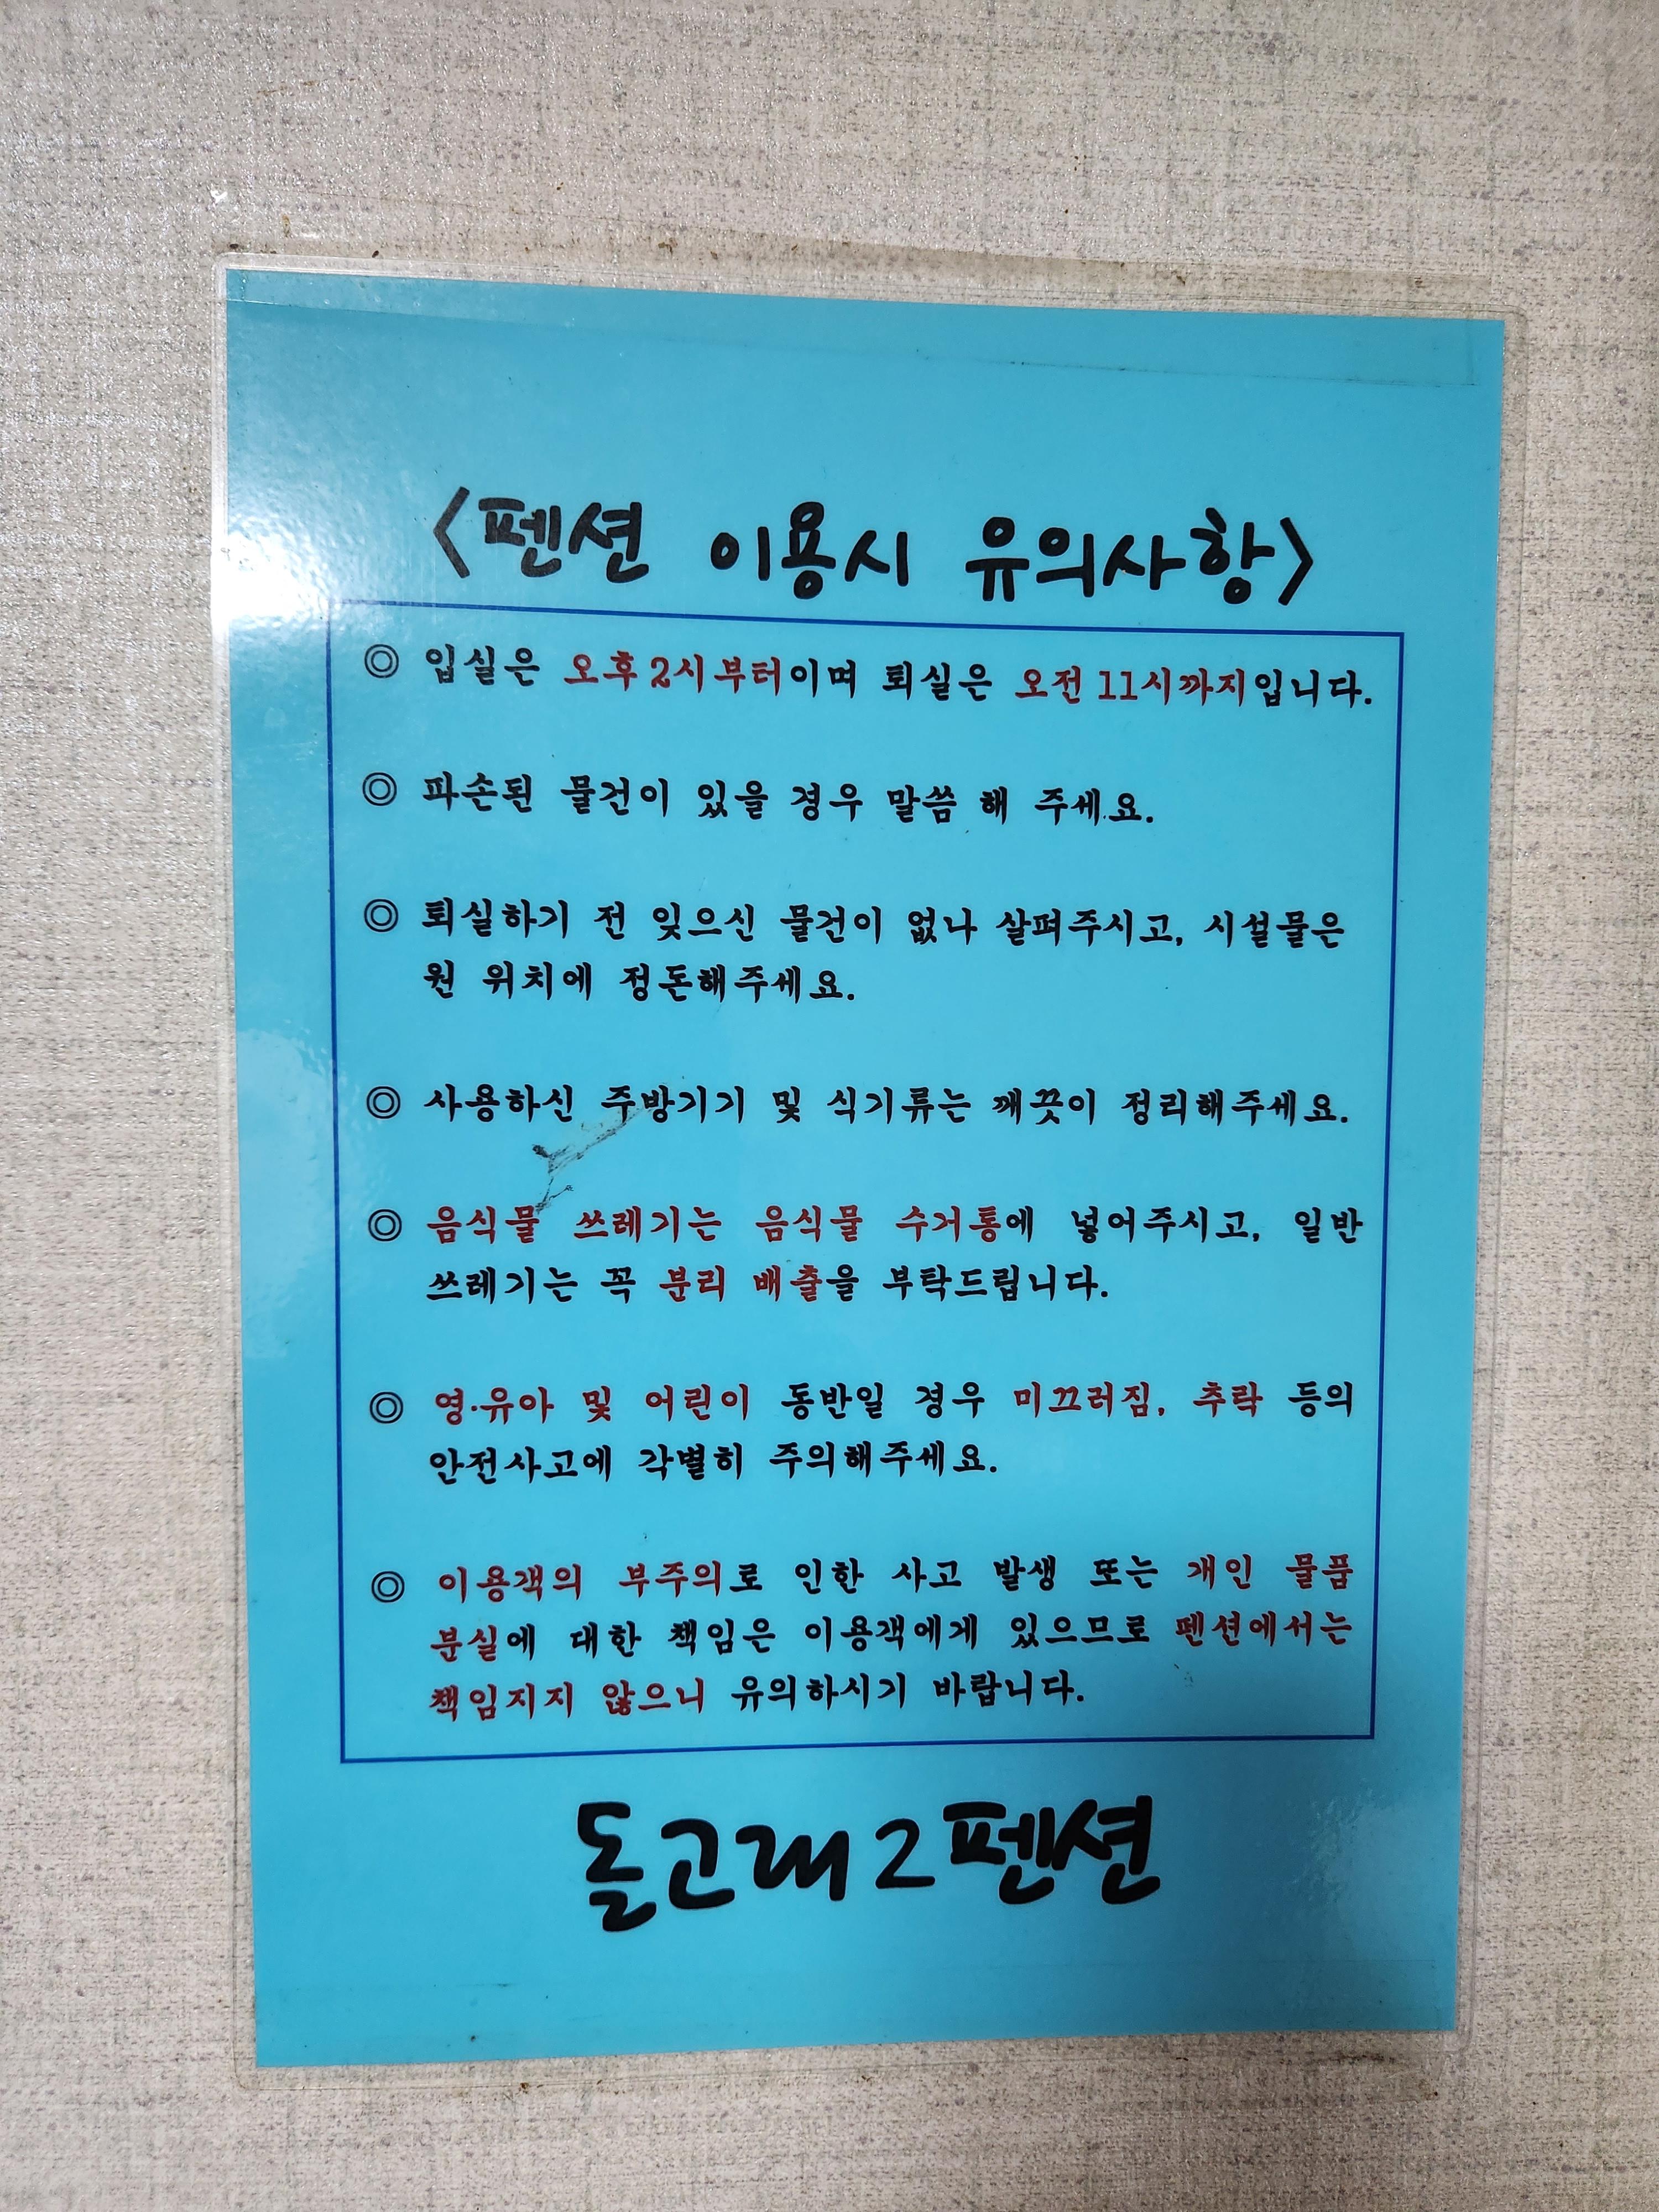 <펜션 이용시 유의사항>
◎ 입실은 오후 2시부터이며 퇴실은 오전 11시까지입니다.
◎ 파손된 물건이 있을 경우 말씀 해 주세요.
◎ 퇴실하기 전 잊으신 물건이 없나 살펴주시고, 시설물은
원 위치에 정돈해주세요.
◎ 사용하신 주방기기 및 식기류는 깨끗이 정리해주세요.
◎ 음식물 쓰레기는 음식물 수거통에 넣어주시고, 일반
쓰레기는 꼭 분리 배출을 부탁드립니다.
◎ 영·유아 및 어린이 동반일 경우 미끄러짐, 추락 등의
안전사고에 각별히 주의해주세요.
◎ 이용객의 부주의로 인한 사고 발생 또는 개인 물품
분실에 대한 책임은 이용객에게 있으므로 펜션에서는
책임지지 않으니 유의하시기 바랍니다.
돌고래2펜션